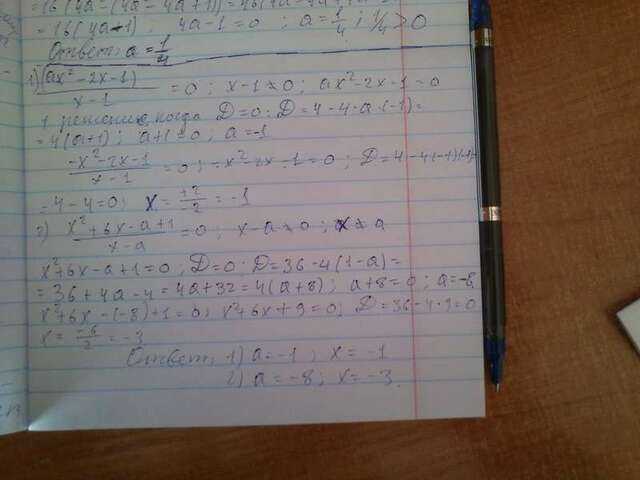 = (16(4a-1); 4a-1=0; a=1/4; 1/4>0
Ответ: a=1/4
1) (ax²-2x-1)/(x-1) = 0; x-1≠0; ax²-2x-1=0
1 решение, когда D=0: D=4-4·a·(-1)=
=4(a+1); a+1=0; a=-1
(-x²-2x-1)/(x-1) = 0; -x²-2x-1=0; D=4-4(-1)(-1)=
=4-4=0; x=+2/-2=-1
2) (x²+6x-a+1)/(x-a) = 0; x-a≠0; x≠a
x²+6x-a+1=0; D=0: D=36-4(1-a)=
=36+4a-4=4a+32=4(a+8); a+8=0; a=-8,
x²+6x-(-8)+1=0; x²+6x+9=0; D=36-4·9=0
x=-6/2=-3
Ответ: 1) a=-1; x=-1
2) a=-8; x=-3.